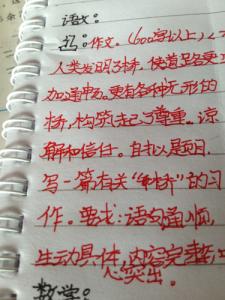 语文:
作文。(600字以上)
人类发明了桥,使道路变
加通畅。更有各种无形的
桥,构筑起了尊重。谅
解和信任。自拟题目,
写一篇有关“桥”的习
作。要求:语句通顺,
生动具体,内容完整,
心突出。
数学: